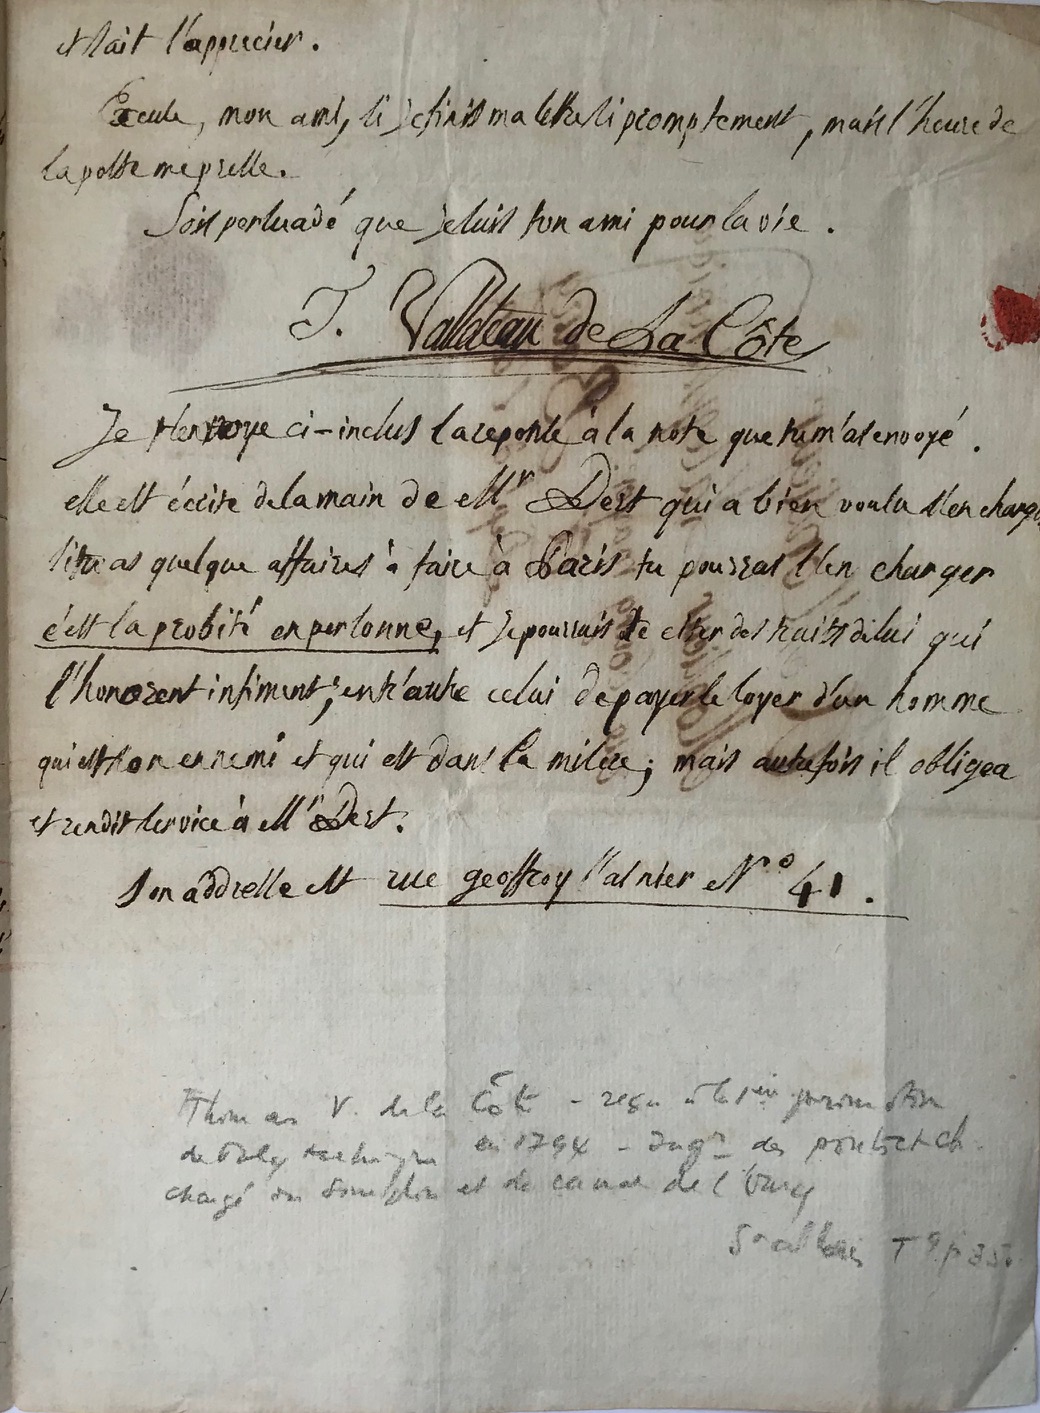 et sait l'apprecier.
Excuse, mon ami, si je finis ma lettre si promptement, mais l'heure de
la poste me presse.
Sois persuadé que je suis ton ami pour la vie.
T. Valdeau de La Côte
Je t'envoye ci-inclus la reponse à la note que tu m'as envoyé.
elle est écrite de la main de Mr Dest qui a bien voulu s'en charger
si tu as quelque affaires à faire à Paris tu pourras l'en charger
c'est la probité en personne, et je pourrais te citer des traits de lui qui
l'honorent infiment; entr'autre celui de payer le loyer d'un homme
qui est son ennemi et qui est dans la misere; mais autrefois il obligea
et rendit service à Mr Dest.
Son addresse est rue geoffroy l'asnier No 41.
Thomas V. de la Côte - reçu à la 1ere promotion
de Polytechnique en 1794 - Ingr des ponts et ch.
chargé du Simplon et du canal de l'Ourcq
St Allais T 9 p